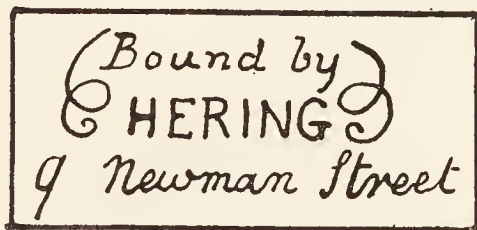 Bound by
HERING
9 Newman Street